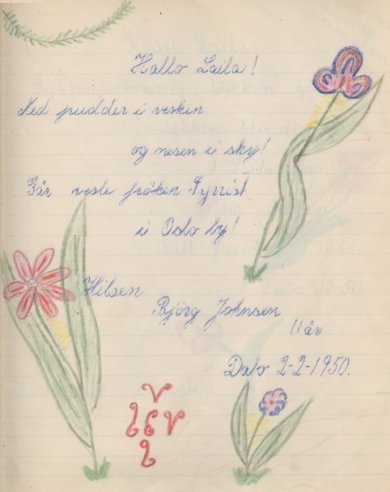 Hallo Laila!
Med pudder i vesken
og nesen i sky!
Går vesle frøken Syrrist
i Oslo by!
Hilsen
Bjørg Johnsen
11 år
Dato 2-2-1950.